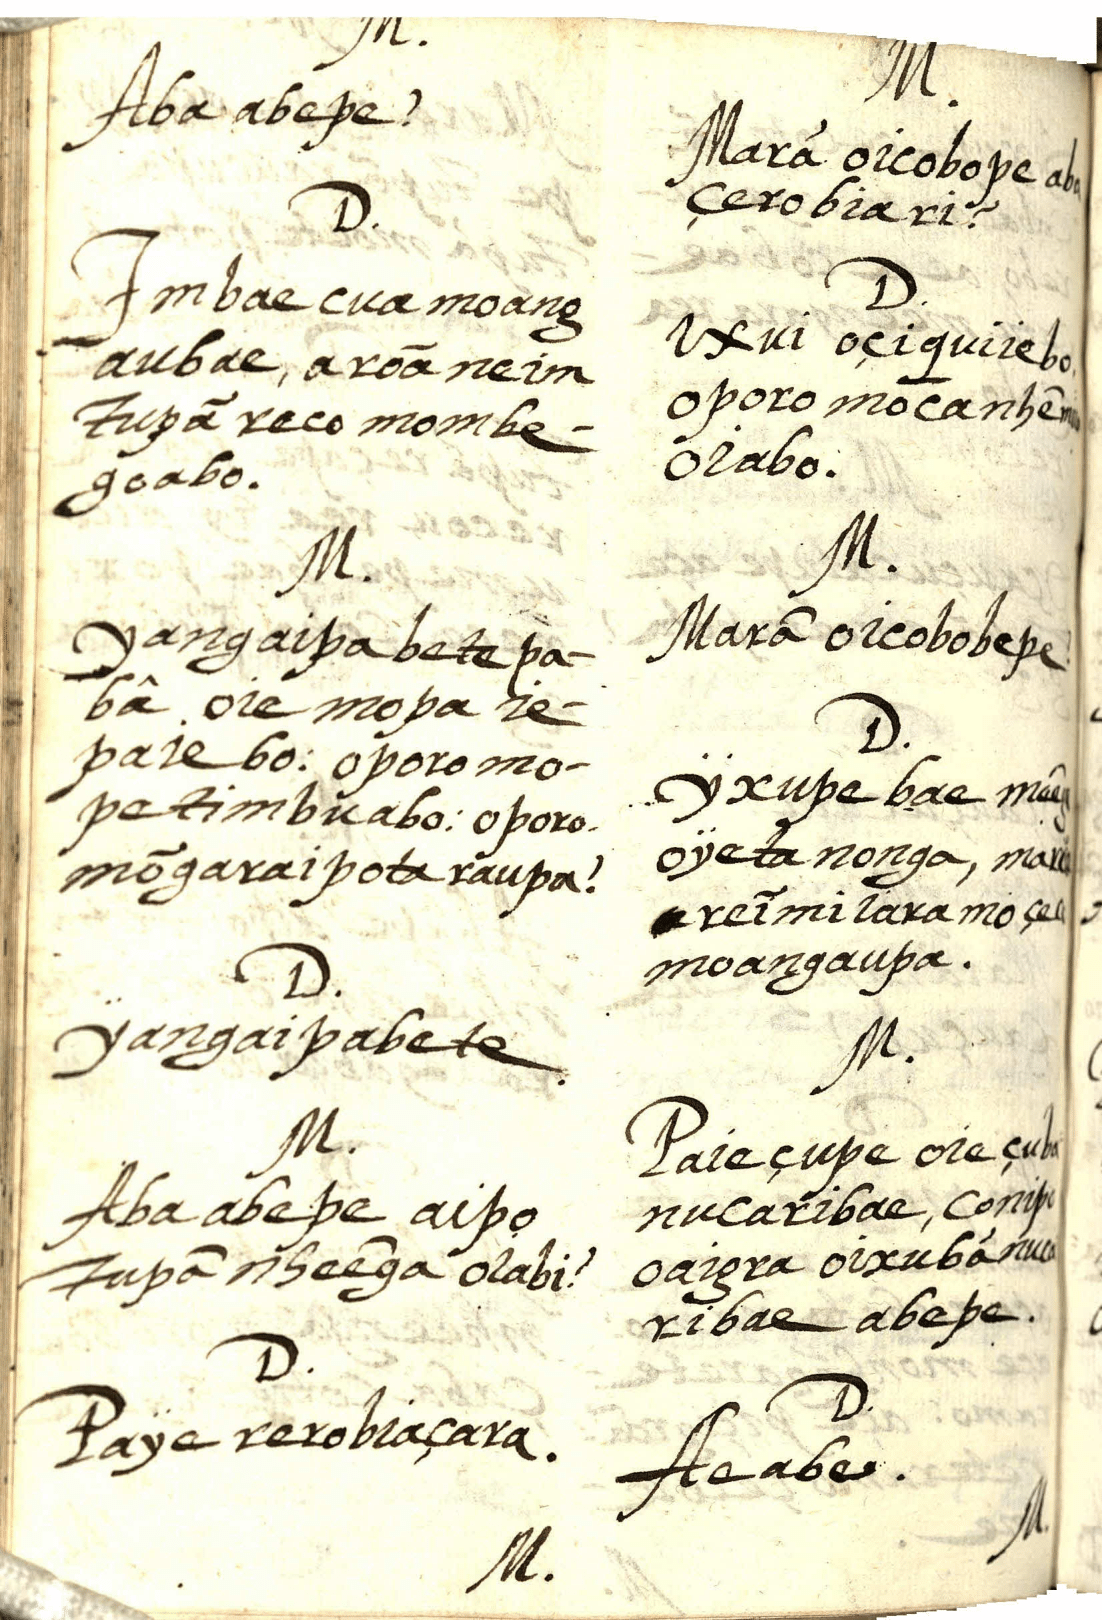 M.
Aba abepe?
D.
Imbae cua moang
aubae, aroã neim
tupã reco mombe-
goabo.
M.
yangaipabete pa-
bâ oie mopa ie-
paie bo: oporo mo-
petimbuabo: oporo-
mõgaraipota raupa?
D.
ÿangaipabete.
M.
Aba abepe aipo
tupã nheẽga olabi?
D.
Paÿe rerobiaçara.
M.
M.
Mará oicobope aba
çerobiari?
D.
Ixui oçiquiiebo,
oporo mocanhẽ
oiabo.
M.
Marã oicobobepe?
D.
ÿxupe bae
oÿeta nonga,
reĩmi iara mo
moangaupa.
M.
Paie çupe oie çuba
nucaribae,
oaigra oixubã nuca
ribae abepe.
D.
Ae abe.
M.